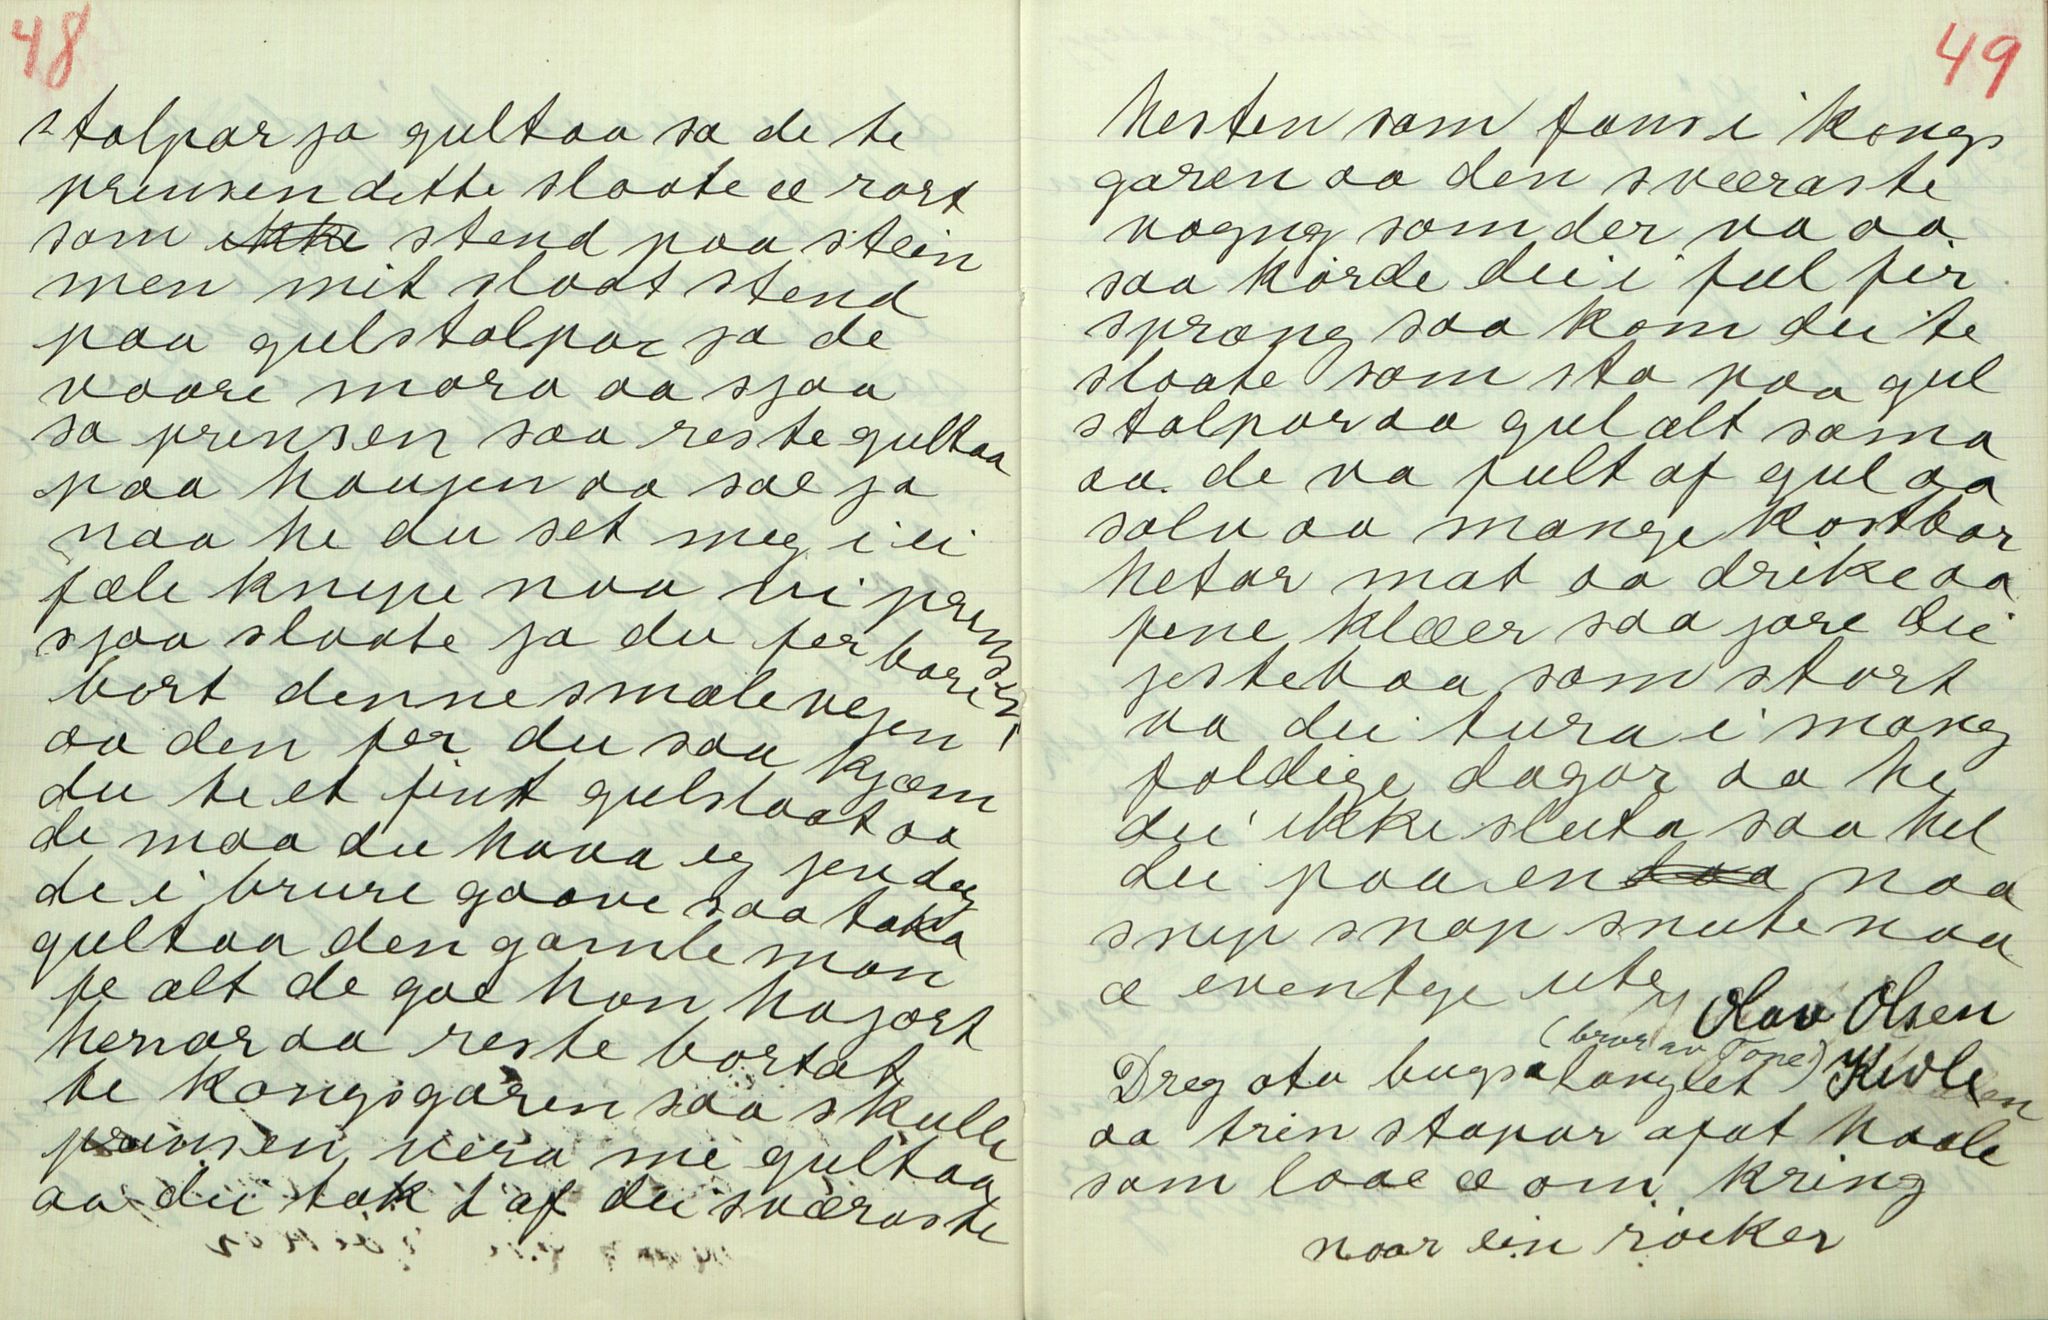 48
stolpar ja gultaa sa de te
prinsen dette slaate æ rart
som ikke stend paa stein
men mit slaat stend
paa gulstolpar ja de
vaare mora aa sjaa
sa prinsen saa reste gultaa
paa haujen aa sae ja
naa he du set meg i ei
fæle knipe naa vi prinsen
sjaa slaate ja du fer bare
bort denne smale vejen
aa den fer du saa kjæm
du te et fint gulslaat aa
de maa du hava eg jev deg
de i brure gaave saa taka
gultaa den gamle man
fe alt de goe han ha jort
henar aa reste bortat
te kongsgaren saa skulle
prinsen vera me gultaa
aa dei tok t af dei sværaste
49
hesten som fans i kongs
garen aa den sværaste
vogng som der va aa
saa kørde dei i ful fir
sprang saa kom dei te
slaate som sto paa gul
stolpar aa gul alt sama
aa de va fult af gul aa
sølv aa mange kostbar
hetar mat aa drike aa
pene klæer saa jore dei
jestebaa som stort
va dei tura i mang
foldige dagar aa he
dei ikke sluta saa hel
dei paa en naa
snip snap snute naa
æ eventye ute
Olav Olsen
(bror av Tone) Kivlen
Dreg ata bugsa langlet
aa trin stapar afat haale
som looe æ om kring
naar ein røiker